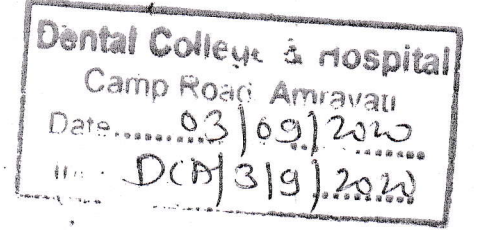 Dental College & Hospital
Camp Road Amravati
Date......... 03/09/2020
DCA/3/9/.2020